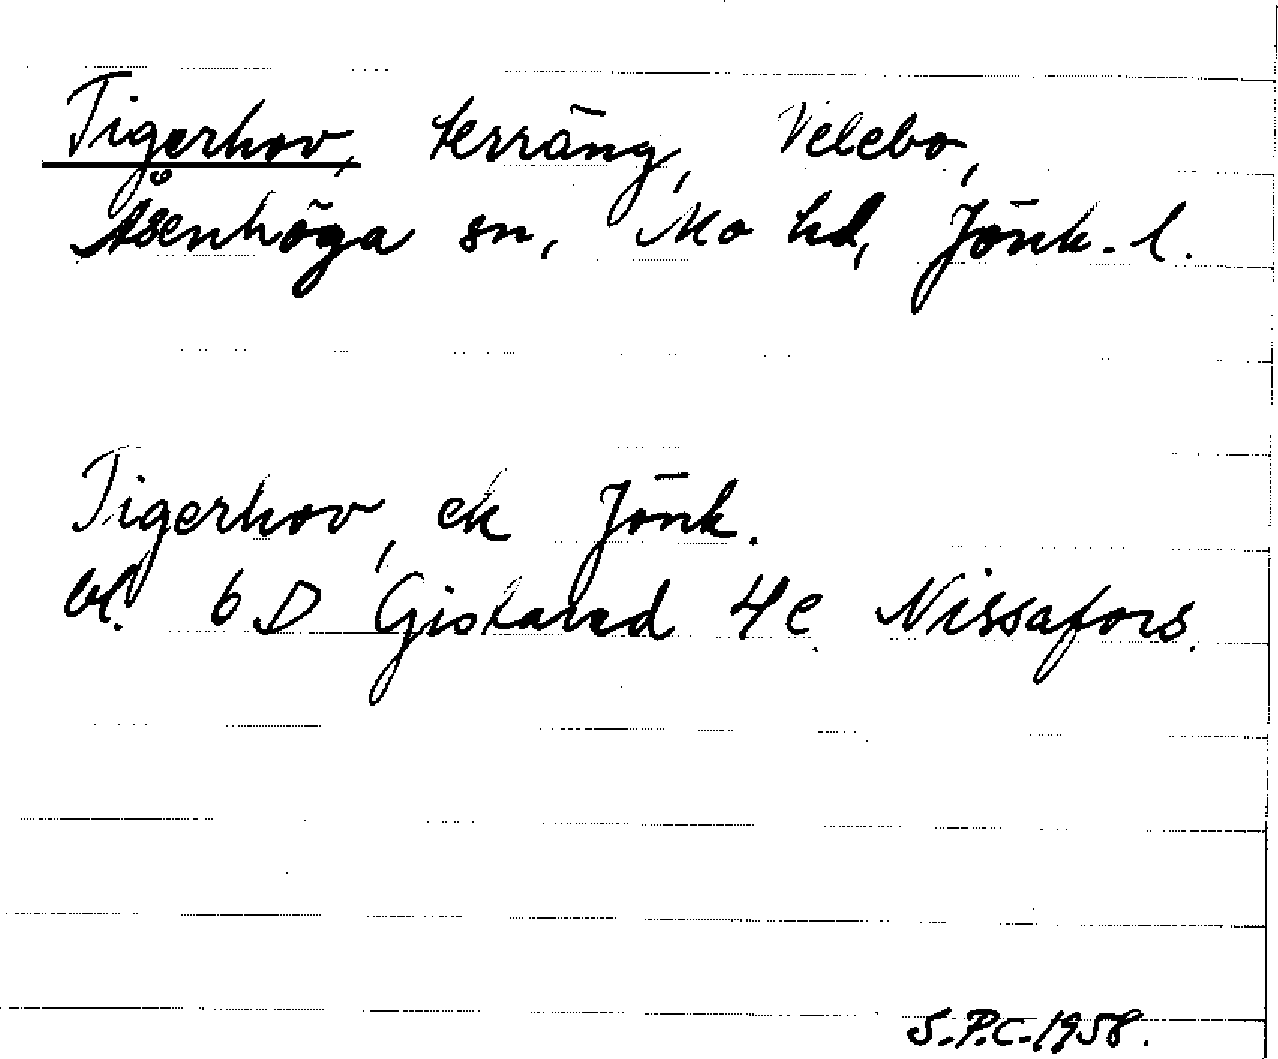 Tigerhov, terräng, Velebo,
Åsenhöga sn, Mo hd, Jönk. l.
Tigerhov, ek Jönk.
bl. 6 D Gislaved 4 e Nissafors.
S.P.C. 1958.